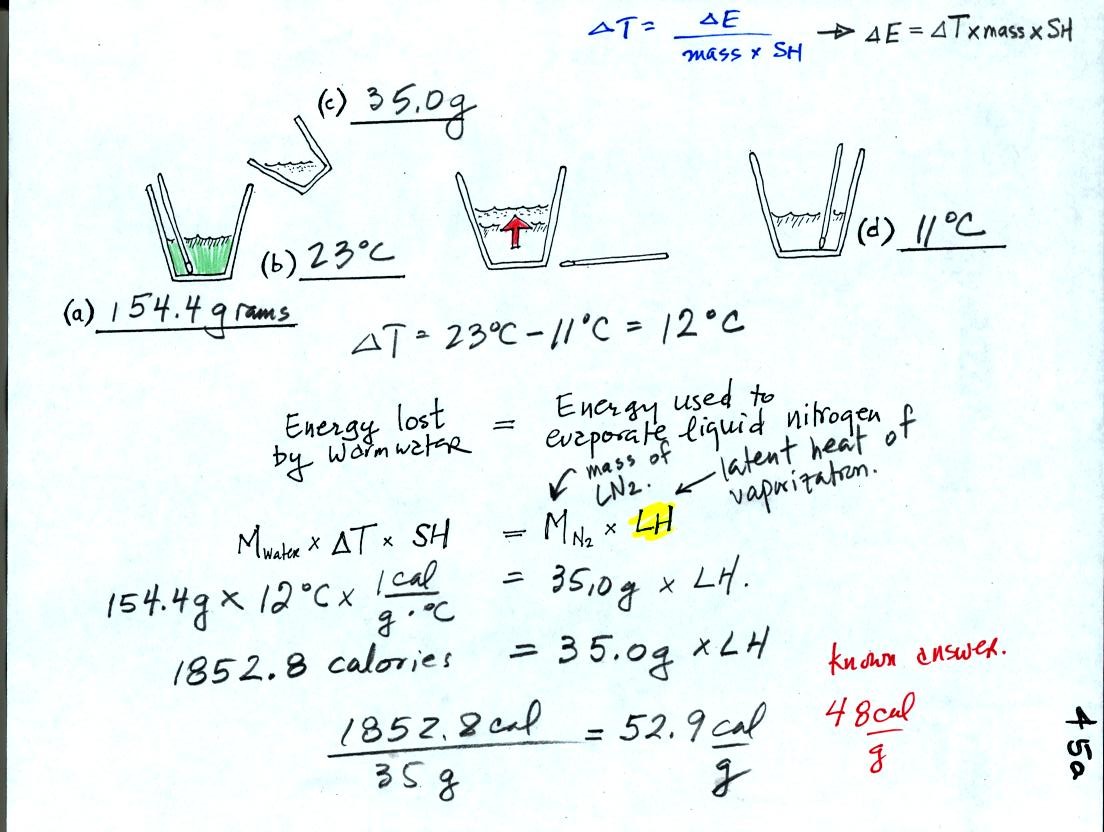 ΔT = ΔE / mass x SH → ΔE = ΔT x mass x SH
(c) 35.0g
(b) 23°C
(d) 11°C
(a) 154.4 grams
ΔT = 23°C - 11°C = 12°C
Energy lost by warm water = Energy used to evaporate liquid nitrogen
mass of LN2.
latent heat of vaporization.
M water x ΔT x SH = M N₂ x LH
154.4g x 12°C x 1 cal / g·°C = 35.0g x LH.
1852.8 calories = 35.0g x LH
known answer.
1852.8 cal / 35 g = 52.9 cal / g
48 cal / g
45a